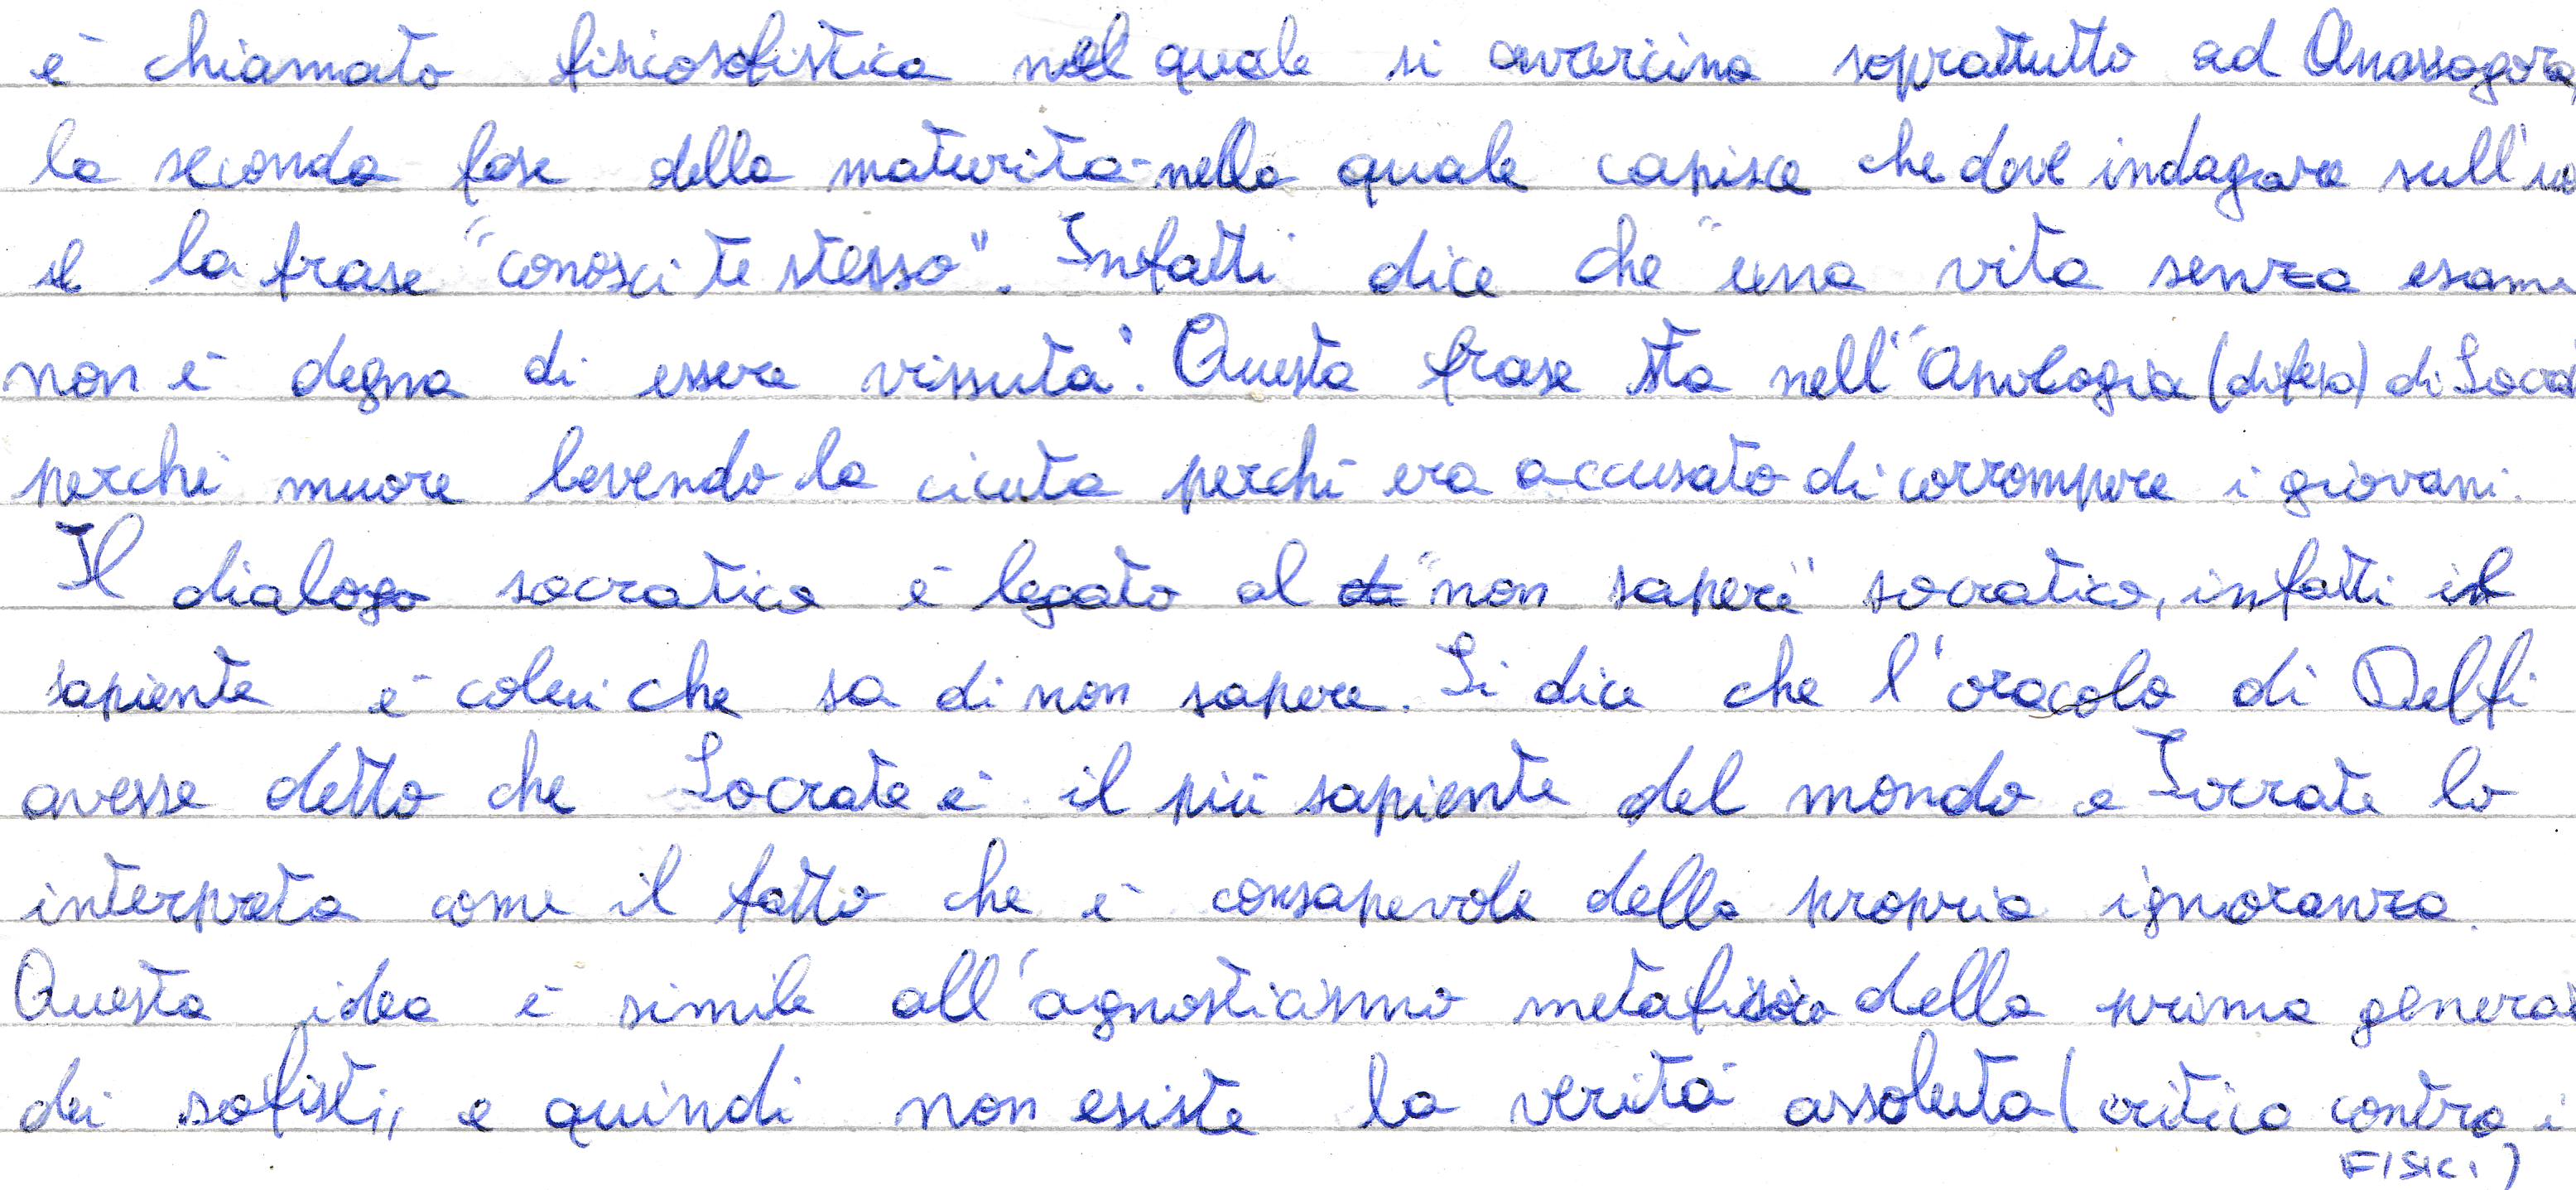 è chiamato fisicosofistica nel quale si avvicina soprattutto ad Anassagora,
la seconda fase della maturità nella quale capisce che deve indagare sull'uo
e la frase "conosci te stesso". Infatti dice che "una vita senza esame
non è degna di essere vissuta". Questa frase sta nell'"Apologia (difesa) di Socra
perché muore bevendo la cicuta perché era accusato di corrompere i giovani.
Il dialogo socratico è legato al "non sapere" socratico, infatti il
sapiente è colui che sa di non sapere. Si dice che l'oracolo di Delfi
avesse detto che Socrate è il più sapiente del mondo e Socrate lo
interpreta come il fatto che è consapevole della propria ignoranza.
Questa idea è simile all'agnosticismo metafisico della prima generaz
dei sofisti, e quindi non esiste la verità assoluta (critica contro i
FISICI)